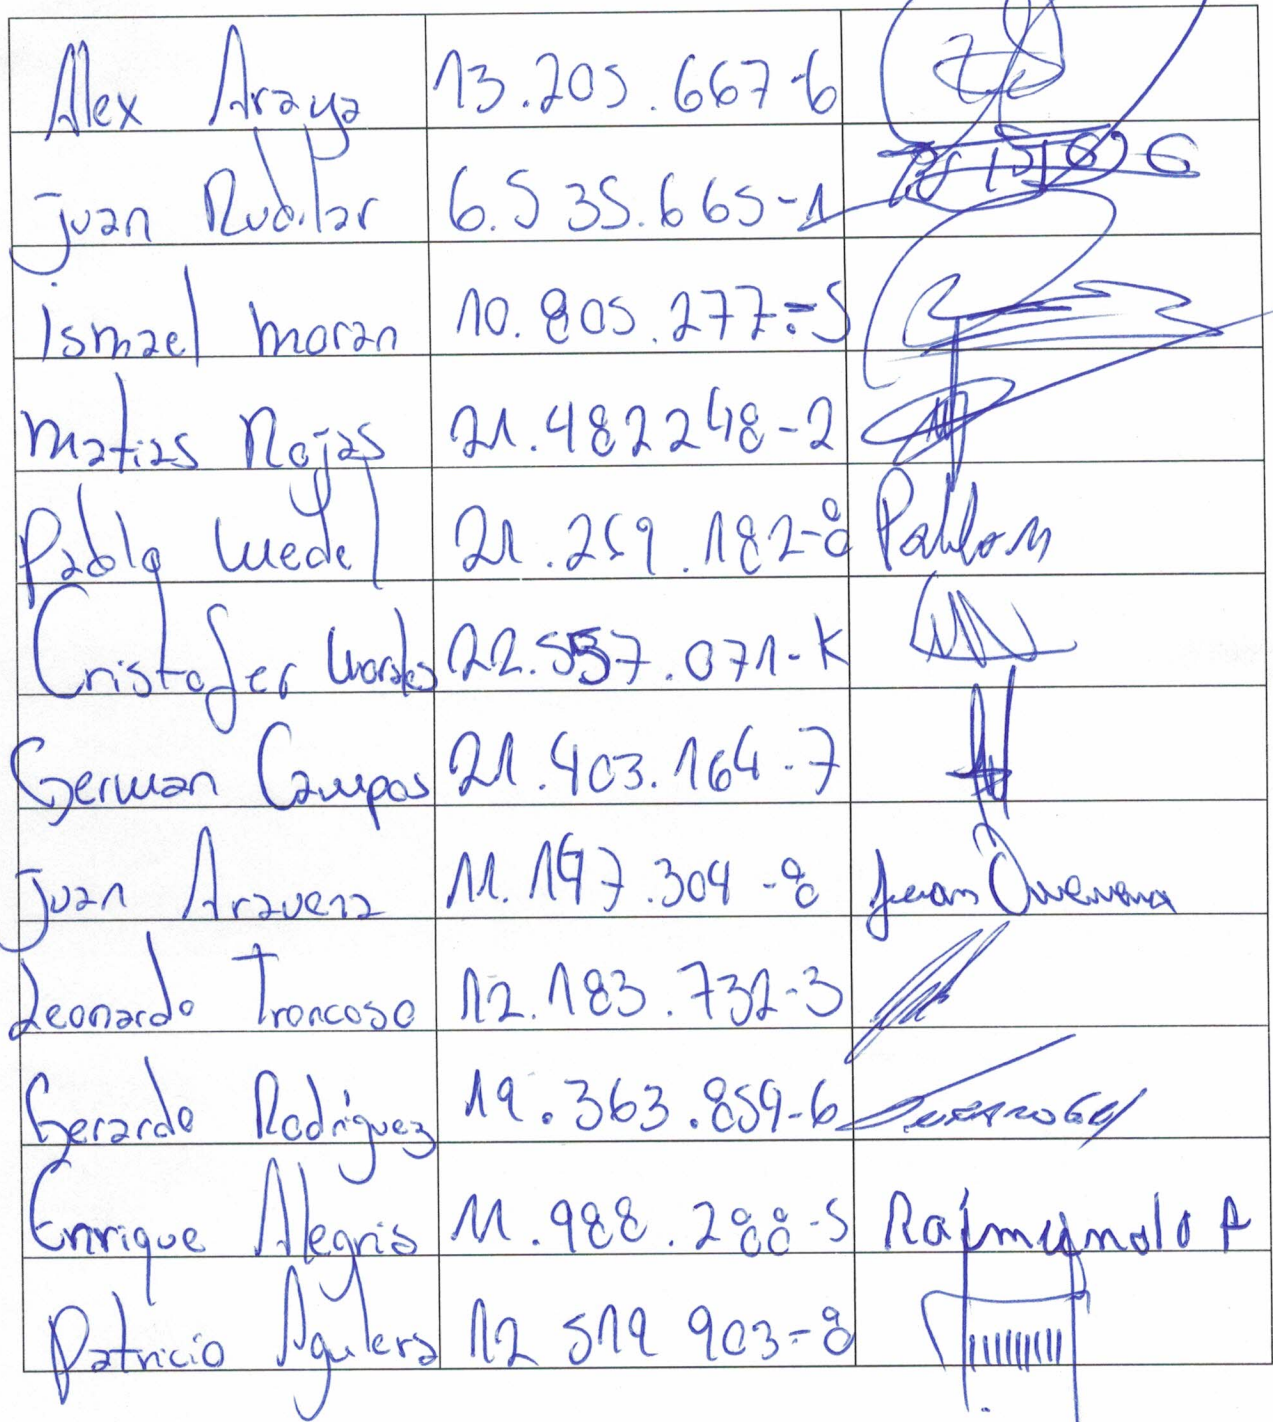 Alex Araya 13.205.667-6
Juan Rudilar 6.535.665-1
Ismael Moran 10.805.277-5
Matias Rojas 21.482248-2
Pablo Medel 21.259.182-8 Pablo M
Cristofer Morales 22.557.071-K
German Campos 21.403.164-7
Juan Aravena 11.197.304-8 Juan Aravena
Leonardo Troncoso 12.183.732-3
Gerardo Rodriguez 19.363.859-6
Enrique Alegria 11.988.288-5 Raimundo A
Patricio Aguilera 12 519 903-8